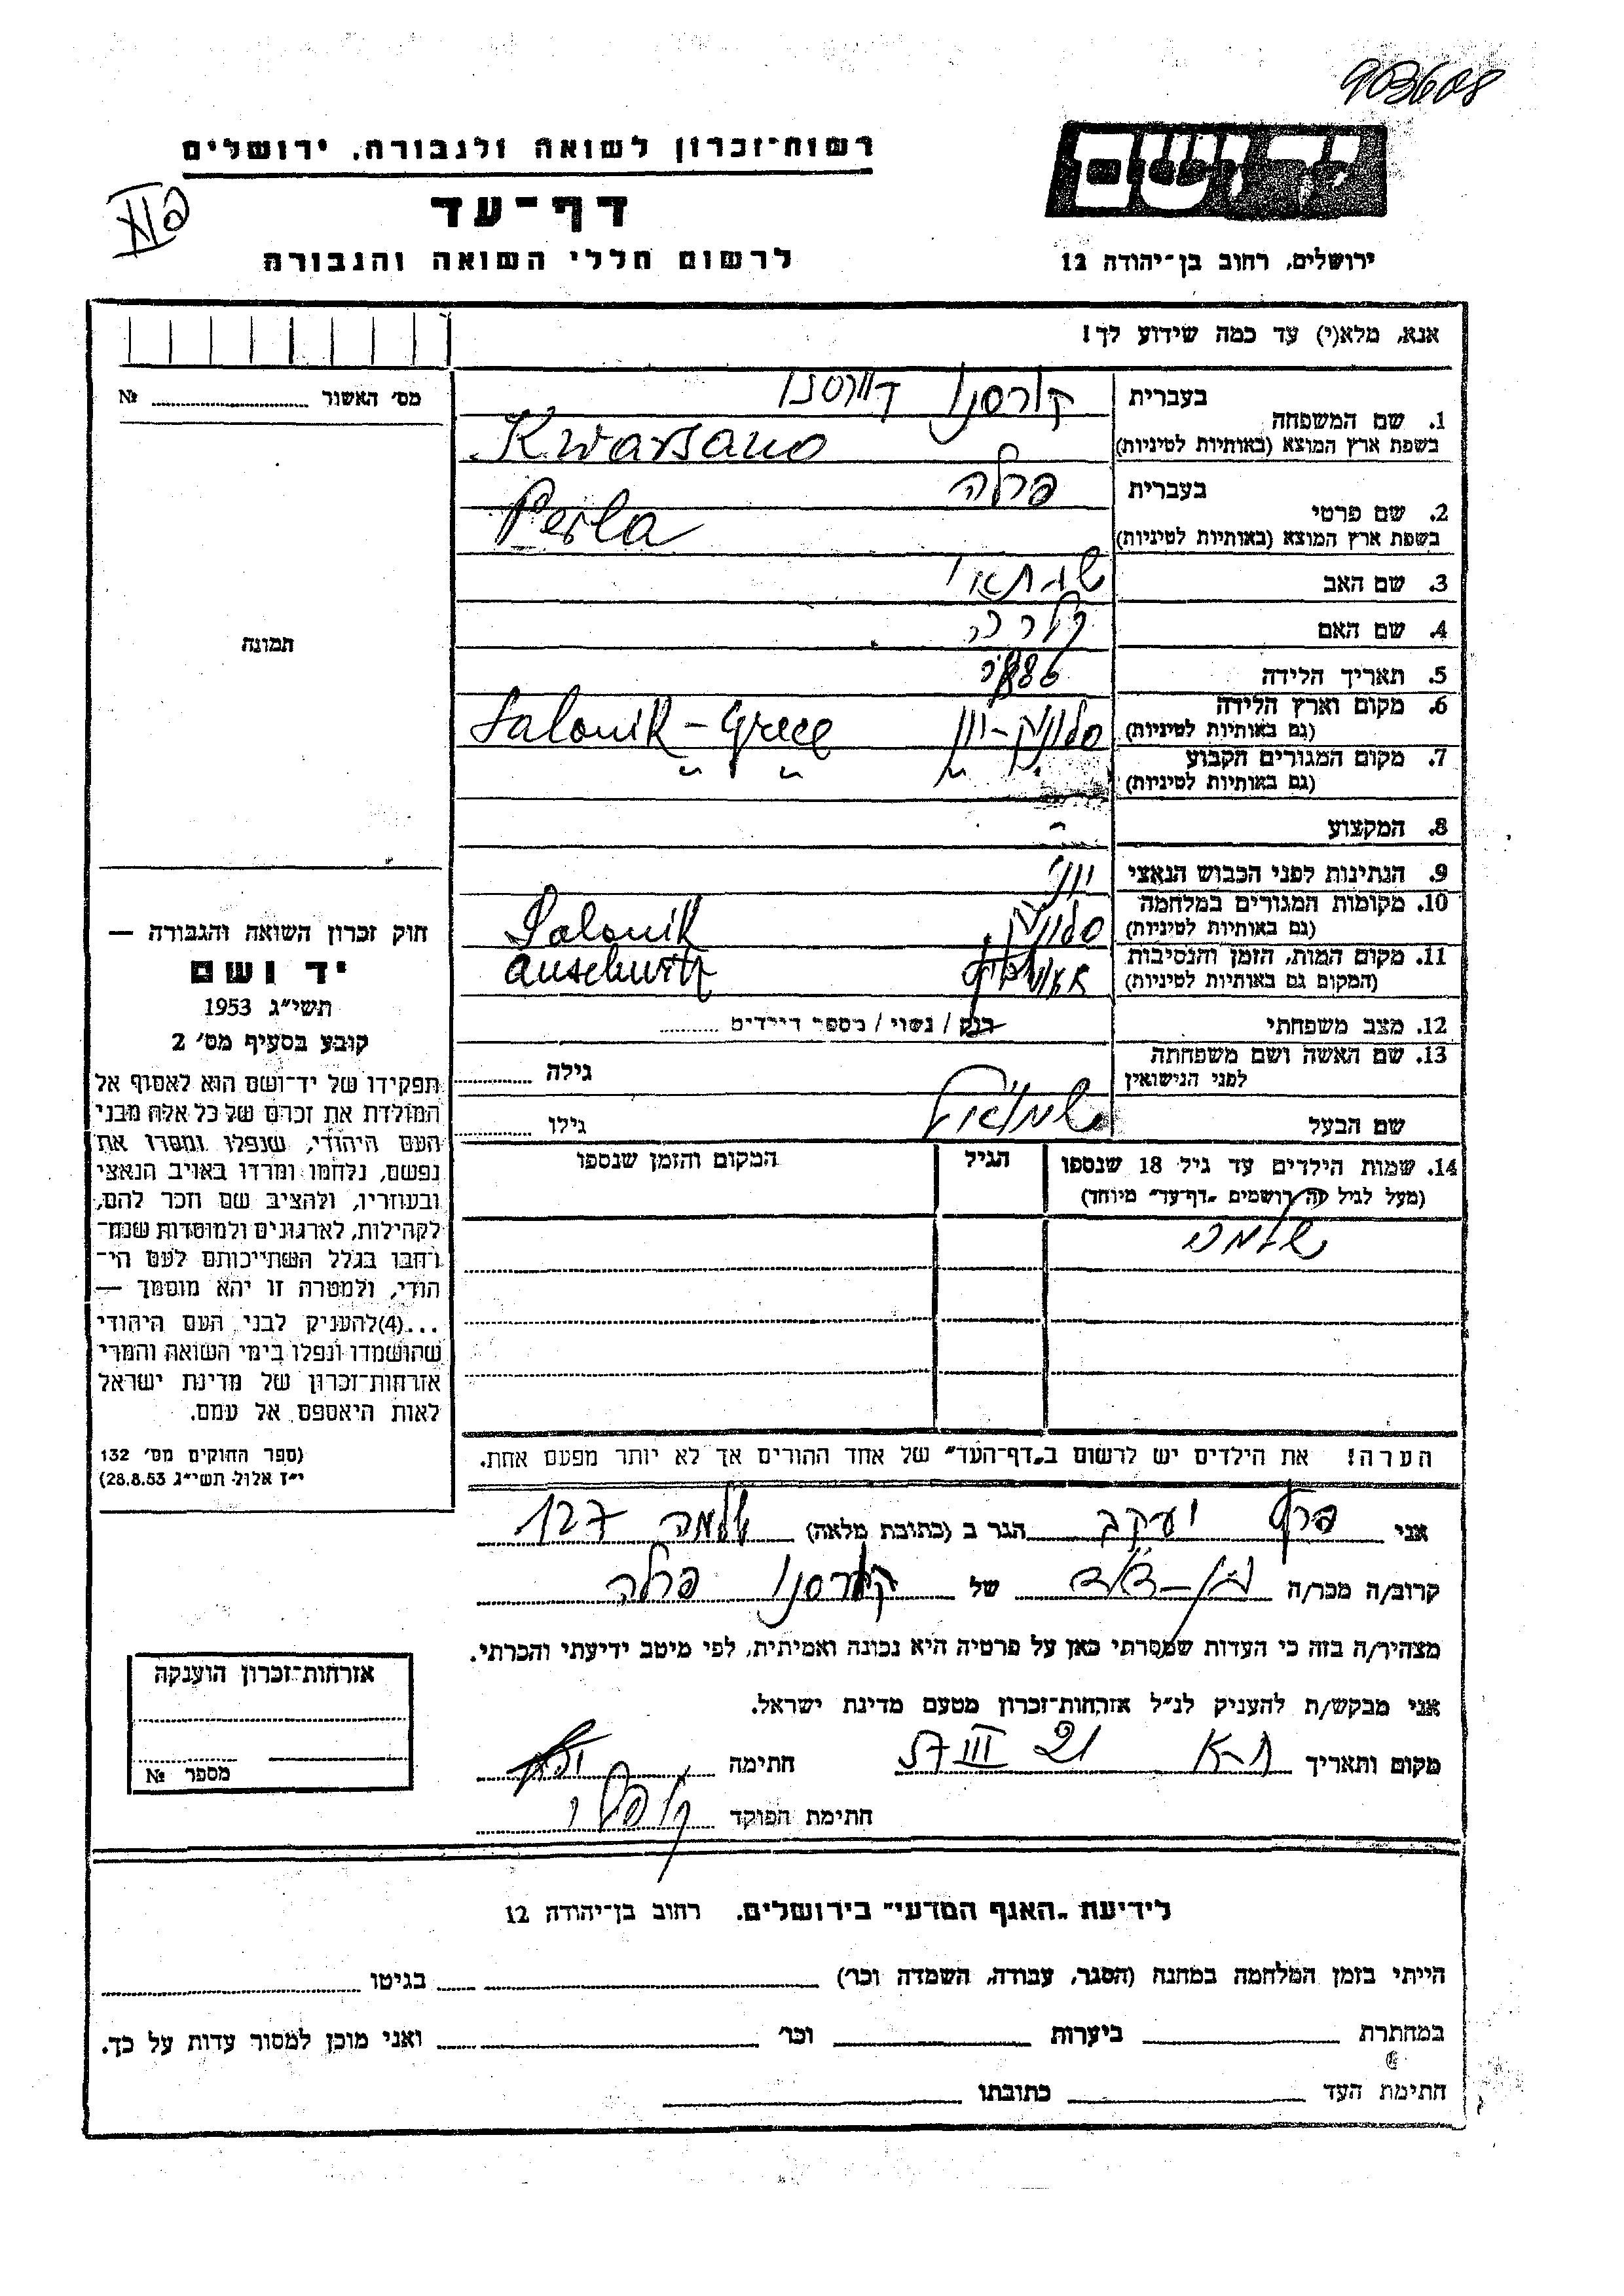 903608
יד ושם
רשות־זכרון לשואה ולגבורה, ירושלים
דף־עד
לרשום חללי השואה והגבורה
ירושלים, רחוב בן־יהודה 12
אנא, מלא(י) עד כמה שידוע לך!
מס׳ האשור № 
1. שם המשפחה
בעברית קורסנו
בשפת ארץ המוצא (באותיות לטיניות) Kwarsano
2. שם פרטי
בעברית פרלה
בשפת ארץ המוצא (באותיות לטיניות) Perla
3. שם האב שבתאי
4. שם האם
5. תאריך הלידה
6. מקום וארץ הלידה סלוניק-יון Salonik - Grece
(גם באותיות לטיניות)
7. מקום המגורים הקבוע
(גם באותיות לטיניות)
8. המקצוע
9. הנתינות לפני הכבוש הנאצי יוני
10. מקומות המגורים במלחמה סלוניק Salonik
(גם באותיות לטיניות)
11. מקום המות, הזמן והנסיבות Auschwitz
(המקום גם באותיות לטיניות)
12. מצב משפחתי רוק / נשוי / מספר הילדים
13. שם האשה ושם משפחתה
לפני הנישואין
גילה
שם הבעל שמואל
גילו
14. שמות הילדים עד גיל 18 שנספו
(מעל לגיל זה רושמים „דף־עד״ מיוחד)
הגיל
המקום והזמן שנספו
שלמה
הערה! את הילדים יש לרשום ב„דף־העד״ של אחד ההורים אך לא יותר מפעם אחת.
תמונה
חוק זכרון השואה והגבורה —
יד ושם
תשי״ג 1953
קובע בסעיף מס׳ 2
תפקידו של יד־ושם הוא לאסוף אל
המולדת את זכרם של כל אלה מבני
העם היהודי, שנפלו ומסרו את
נפשם, נלחמו ומרדו באויב הנאצי
ובעוזריו, ולהציב שם וזכר להם,
לקהילות, לארגונים ולמוסדות שנח־
רבו בגלל השתייכותם לעם הי־
הודי, ולמטרה זו יהא מוסמך —
...(4) להעניק לבני העם היהודי
שהושמדו ונפלו בימי השואה והמרי
אזרחות־זכרון של מדינת ישראל
לאות היאספם אל עמם.
(ספר החוקים מס׳ 132
י״ז אלול תשי״ג 28.8.53)
אני פרץ יעקב הגר ב (כתובת מלאה) שלמה 127
קרוב/ה מכר/ה בן-דוד של קורסנו פרלה
מצהיר/ה בזה כי העדות שמסרתי כאן על פרטיה היא נכונה ואמיתית, לפי מיטב ידיעתי והכרתי.
אני מבקש/ת להעניק לנ״ל אזרחות־זכרון מטעם מדינת ישראל.
מקום ותאריך ת-א 21 III 57 חתימה
חתימת הפוקד
אזרחות־זכרון הוענקה
מספר №
לידיעת „האגף המדעי״ בירושלים. רחוב בן־יהודה 12
הייתי בזמן המלחמה במחנה (הסגר, עבודה, השמדה וכו׳) בגיטו
במחתרת ביערות וכו׳ ואני מוכן למסור עדות על כך.
חתימת העד כתובתו